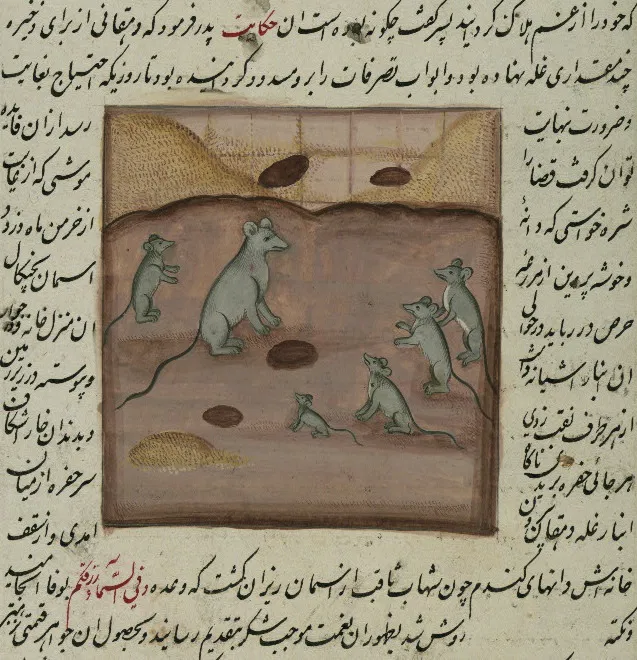 که خود را از غم هلاک کردنید پسر گفت چگونه بوده است ان حکایت پدر فرمود که دهقانی از برای ذخیره
چند مقداری غله نهاده بود و ابواب تصرفات را برو مسدود گردانیده بود تا روزیکه احتیاج بغایت
و ضرورت نهایت رسد از ان فایده
توان گرفت قضا را موشی که از غایت
شره خواستی که دانه از خرمن ماه دزدد
و خوشه پروین از مزرعه اسمان بچنگال
حرص در رباید در حوالی ان منزل خانه جوار
ان انبار اشیانه داشت و پیوسته در زیر زمین
از هر طرف نقب زدی و بدندان خاراشکاف
هر جائی حفره بریدی ناگاه سر حفره از میان
انبار غله دهقان امدی و از سقف
خانه اش دانهای گندم چون شهاب ثاقب از اسمان ریزان گشت که وعده و فی السماء رزقکم بوفا انجامید
و نکته روشن شد بظهور ان نعمت موجب شکر بتقدیم رسانید و بحصول ان جواهر قیمتی